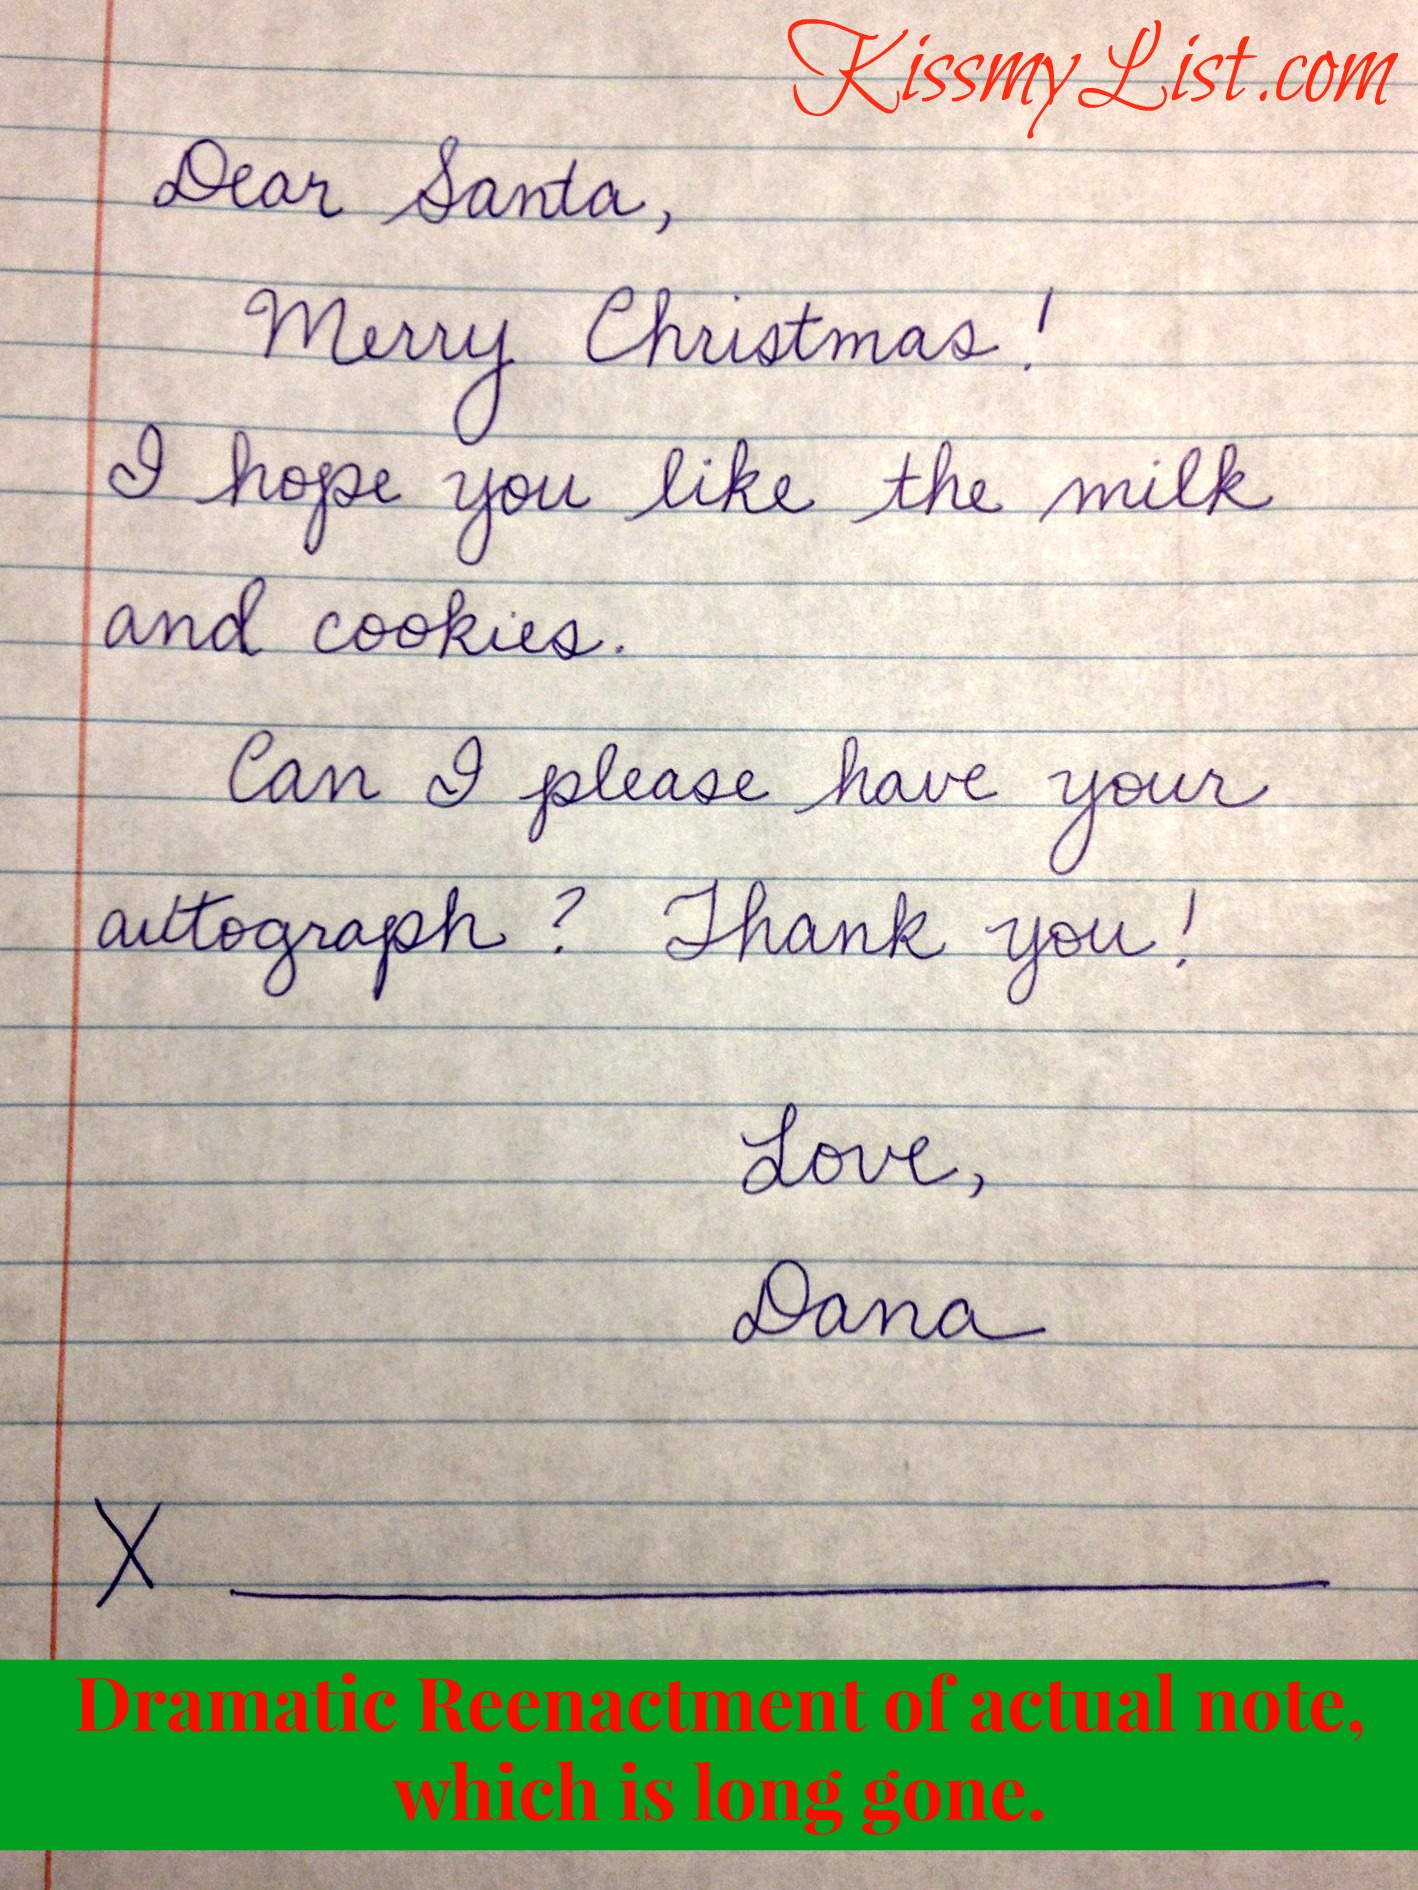 KissmyList.com
Dear Santa,
Merry Christmas!
I hope you like the milk
and cookies.
Can I please have your
autograph? Thank you!
Love,
Dana
X
Dramatic Reenactment of actual note,
which is long gone.